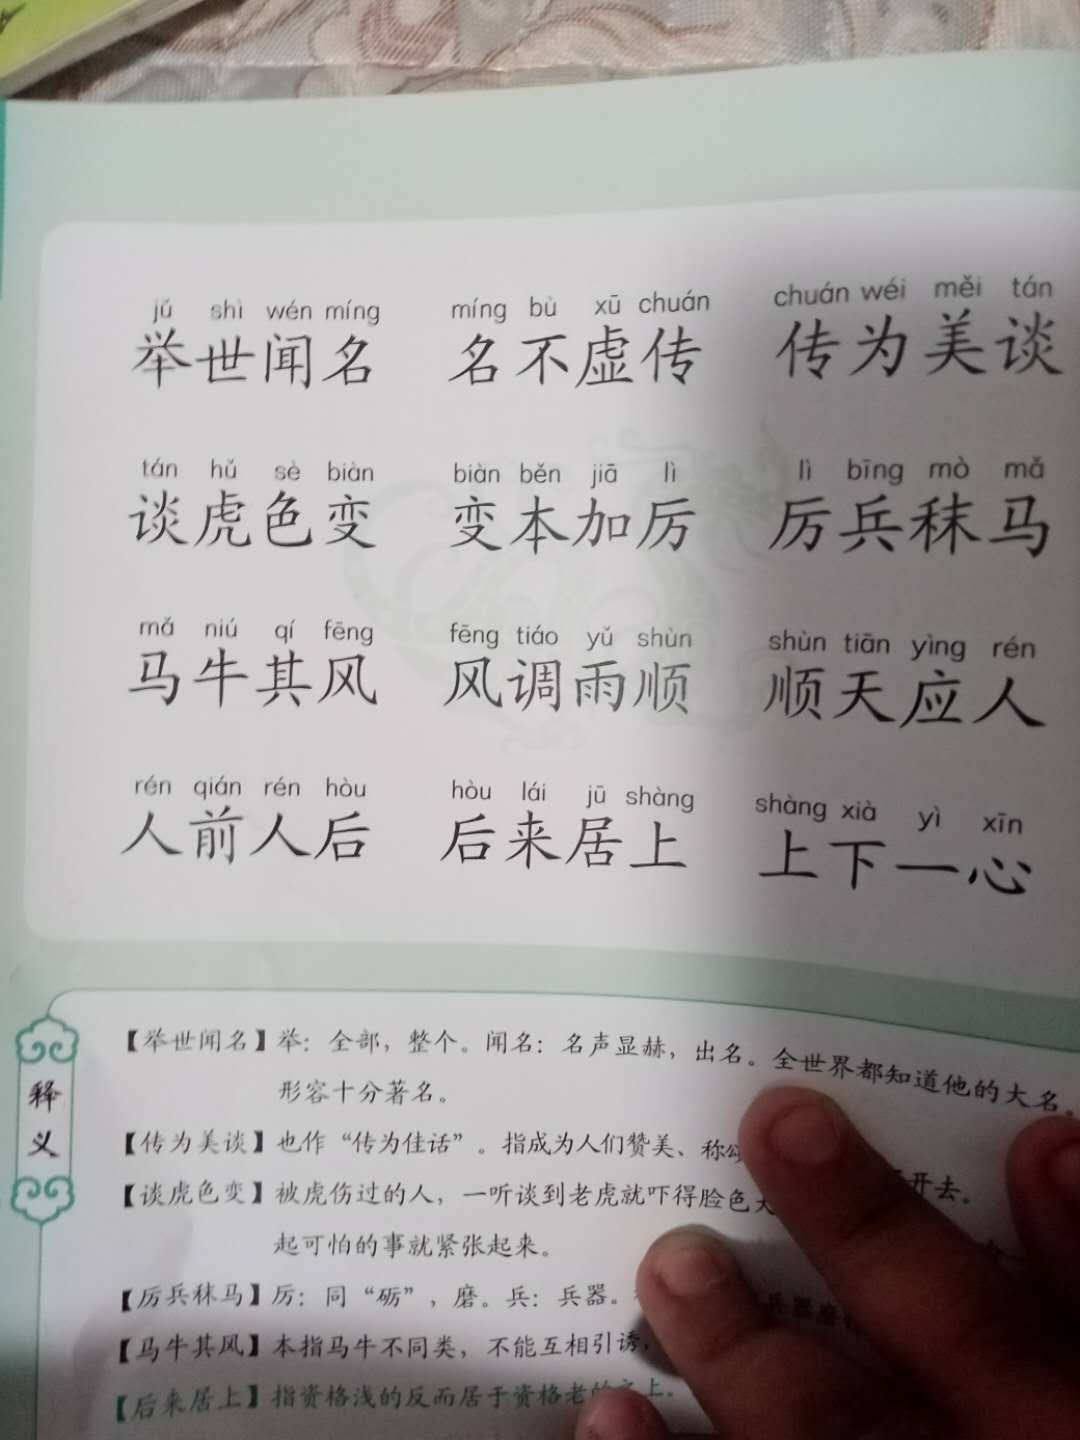 jǔ shì wén míng míng bù xū chuán chuán wéi měi tán
举世闻名 名不虚传 传为美谈
tán hǔ sè biàn biàn běn jiā lì lì bīng mò mǎ
谈虎色变 变本加厉 厉兵秣马
mǎ niú qí fēng fēng tiáo yǔ shùn shùn tiān yìng rén
马牛其风 风调雨顺 顺天应人
rén qián rén hòu hòu lái jū shàng shàng xià yì xīn
人前人后 后来居上 上下一心
释义
【举世闻名】举：全部，整个。闻名：名声显赫，出名。全世界都知道他的大名。
形容十分著名。
【传为美谈】也作“传为佳话”。指成为人们赞美、称颂 开去。
【谈虎色变】被虎伤过的人，一听谈到老虎就吓得脸色大
起可怕的事就紧张起来。
【厉兵秣马】厉：同“砺”，磨。兵：兵器。 兵器磨
【马牛其风】本指马牛不同类，不能互相引诱，
【后来居上】指资格浅的反而居于资格老的之上。